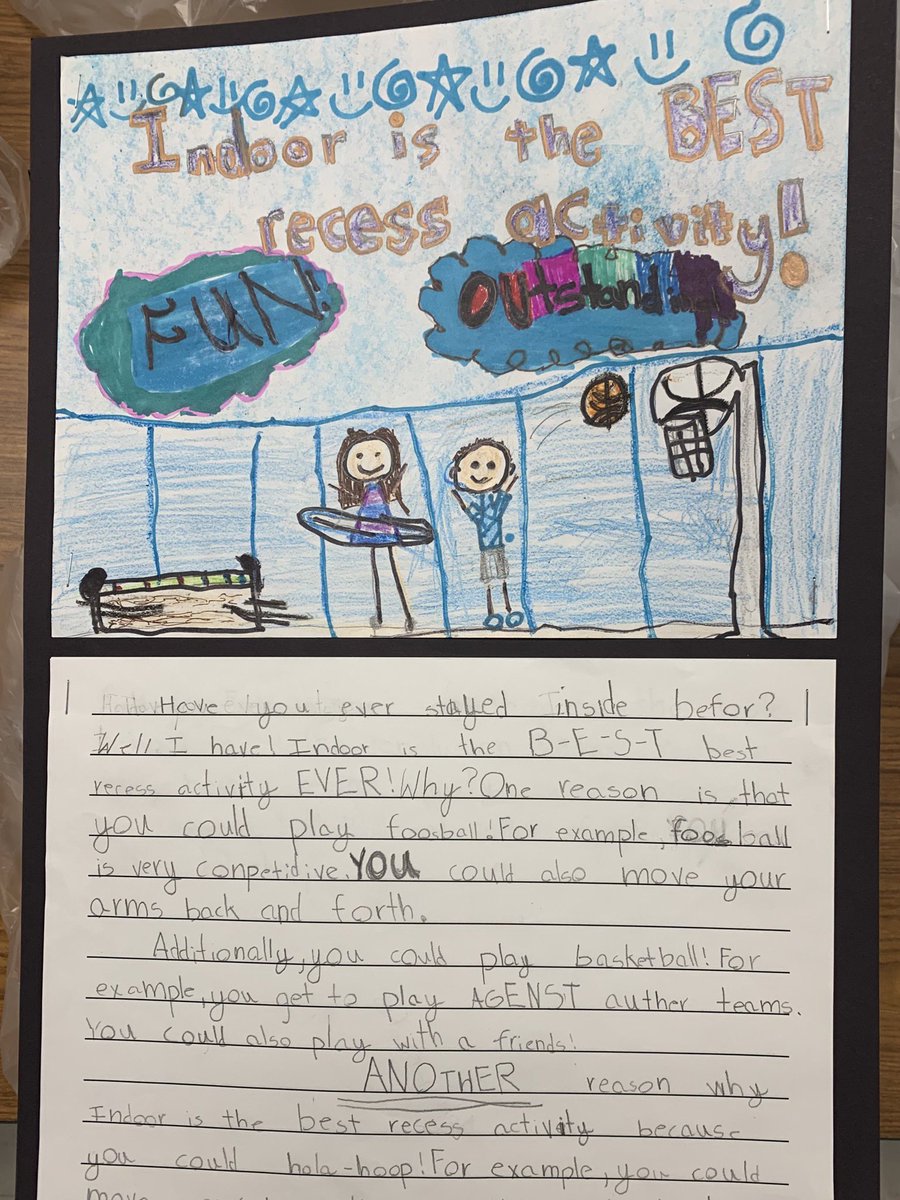 Indoor is the BEST
recess activity!
FUN!
Outstanding!
Have you ever stayed inside befor?
Well I have! Indoor is the B-E-S-T best
recess activity EVER! Why? One reason is that
you could play foosball! For example, foosball
is very conpetidive. YOU could also move your
arms back and forth.
Additionally, you could play basketball! For
example, you get to play AGENST auther teams.
You could also play with a friends!
ANOTHER reason why
Indoor is the best recess activity because
you could hola-hoop! For example, you could
move